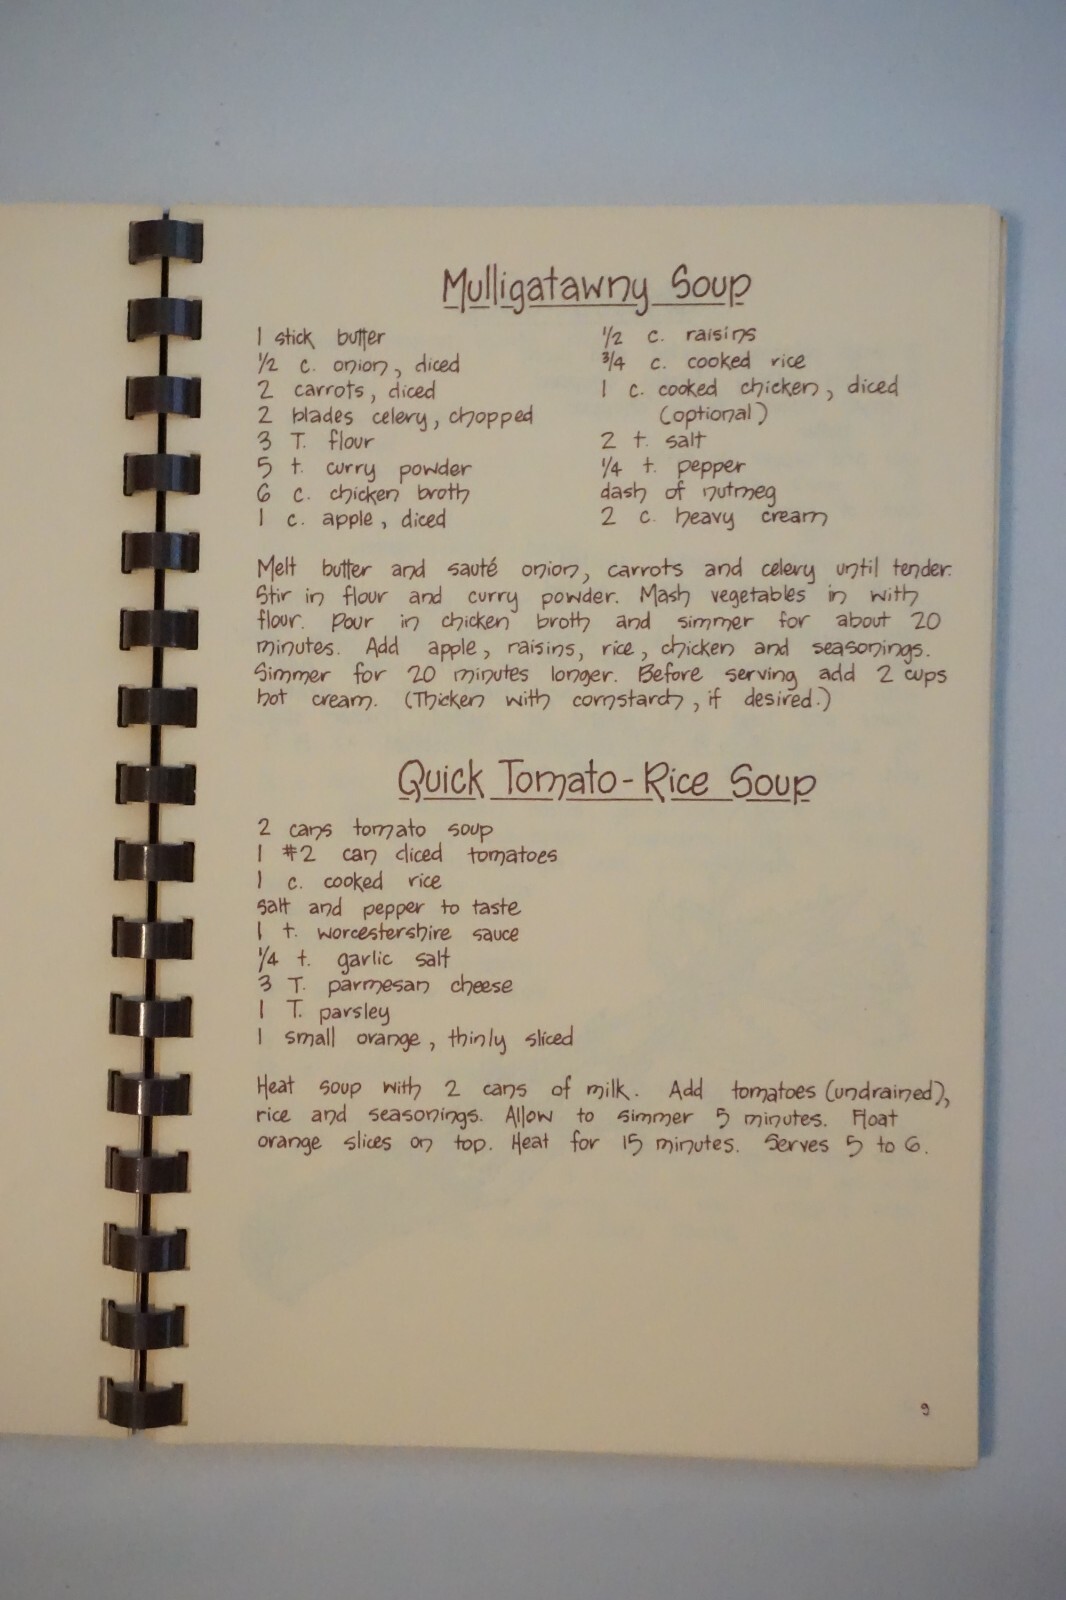 Mulligatawny Soup
1 stick butter
1/2 c. onion, diced
2 carrots, diced
2 blades celery, chopped
3 T. flour
5 t. curry powder
6 c. chicken broth
1 c. apple, diced
1/2 c. raisins
3/4 c. cooked rice
1 c. cooked chicken, diced
(optional)
2 t. salt
1/4 t. pepper
dash of nutmeg
2 c. heavy cream
Melt butter and sauté onion, carrots and celery until tender.
Stir in flour and curry powder. Mash vegetables in with
flour. Pour in chicken broth and simmer for about 20
minutes. Add apple, raisins, rice, chicken and seasonings.
Simmer for 20 minutes longer. Before serving add 2 cups
hot cream. (Thicken with cornstarch, if desired.)
Quick Tomato-Rice Soup
2 cans tomato soup
1 #2 can diced tomatoes
1 c. cooked rice
salt and pepper to taste
1 t. worcestershire sauce
1/4 t. garlic salt
3 T. parmesan cheese
1 T. parsley
1 small orange, thinly sliced
Heat soup with 2 cans of milk. Add tomatoes (undrained),
rice and seasonings. Allow to simmer 5 minutes. Float
orange slices on top. Heat for 15 minutes. Serves 5 to 6.
9